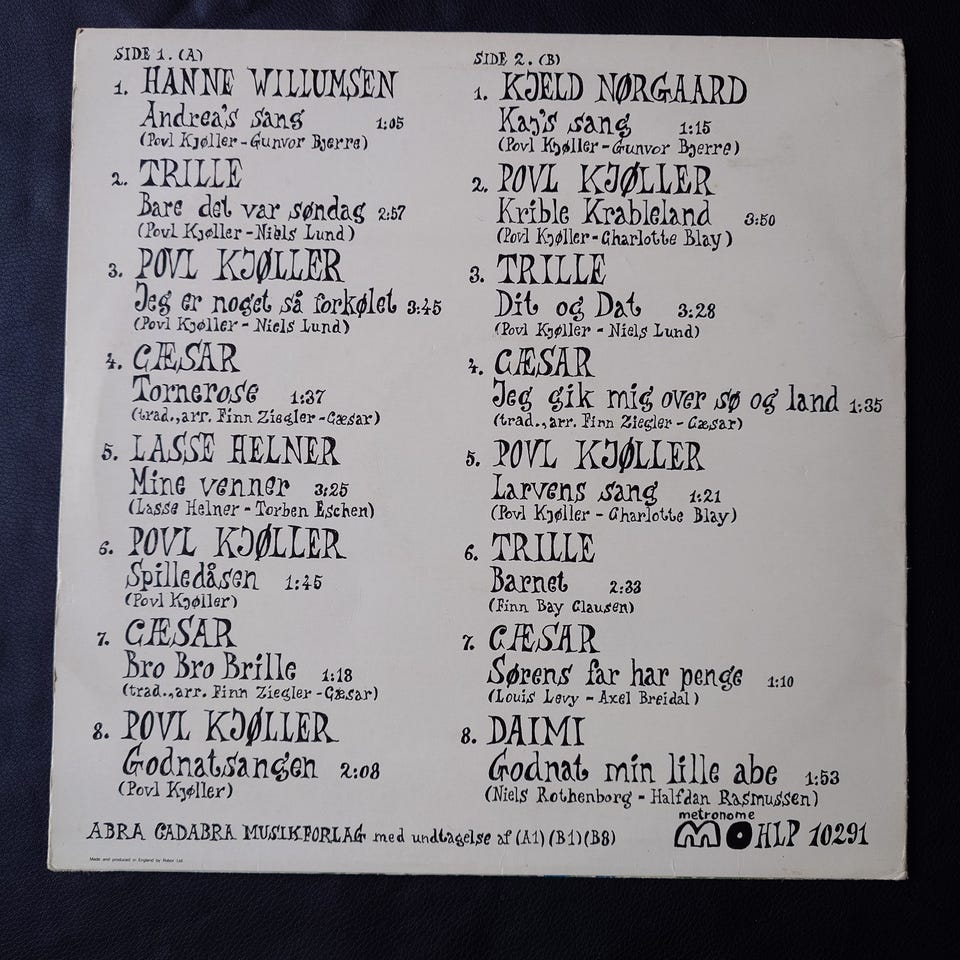 SIDE 1. (A)
1. HANNE WILLUMSEN
Andrea's sang 1:05
(Povl Kjøller - Gunvor Bjerre)
2. TRILLE
Bare det var søndag 2:57
(Povl Kjøller - Niels Lund)
3. POVL KJØLLER
Jeg er noget så forkølet 3:45
(Povl Kjøller - Niels Lund)
4. CÆSAR
Tornerose 1:37
(trad., arr. Finn Ziegler - Cæsar)
5. LASSE HELNER
Mine venner 3:25
(Lasse Helner - Torben Eschen)
6. POVL KJØLLER
Spilledåsen 1:45
(Povl Kjøller)
7. CÆSAR
Bro Bro Brille 1:18
(trad., arr. Finn Ziegler - Cæsar)
8. POVL KJØLLER
Godnatsangen 2:08
(Povl Kjøller)
SIDE 2. (B)
1. KJELD NØRGAARD
Kaj's sang 1:15
(Povl Kjøller - Gunvor Bjerre)
2. POVL KJØLLER
Krible Krableland 3:50
(Povl Kjøller - Charlotte Blay)
3. TRILLE
Dit og Dat 3:28
(Povl Kjøller - Niels Lund)
4. CÆSAR
Jeg gik mig over sø og land 1:35
(trad., arr. Finn Ziegler - Cæsar)
5. POVL KJØLLER
Larvens sang 1:21
(Povl Kjøller - Charlotte Blay)
6. TRILLE
Barnet 2:33
(Finn Bay Clausen)
7. CÆSAR
Sørens far har penge 1:10
(Louis Levy - Axel Breidal)
8. DAIMI
Godnat min lille abe 1:53
(Niels Rothenborg - Halfdan Rasmussen)
ABRA CADABRA MUSIKFORLAG med undtagelse af (A1) (B1) (B8)
metronome
MO HLP 10291
Made and produced in England by Robor Ltd.